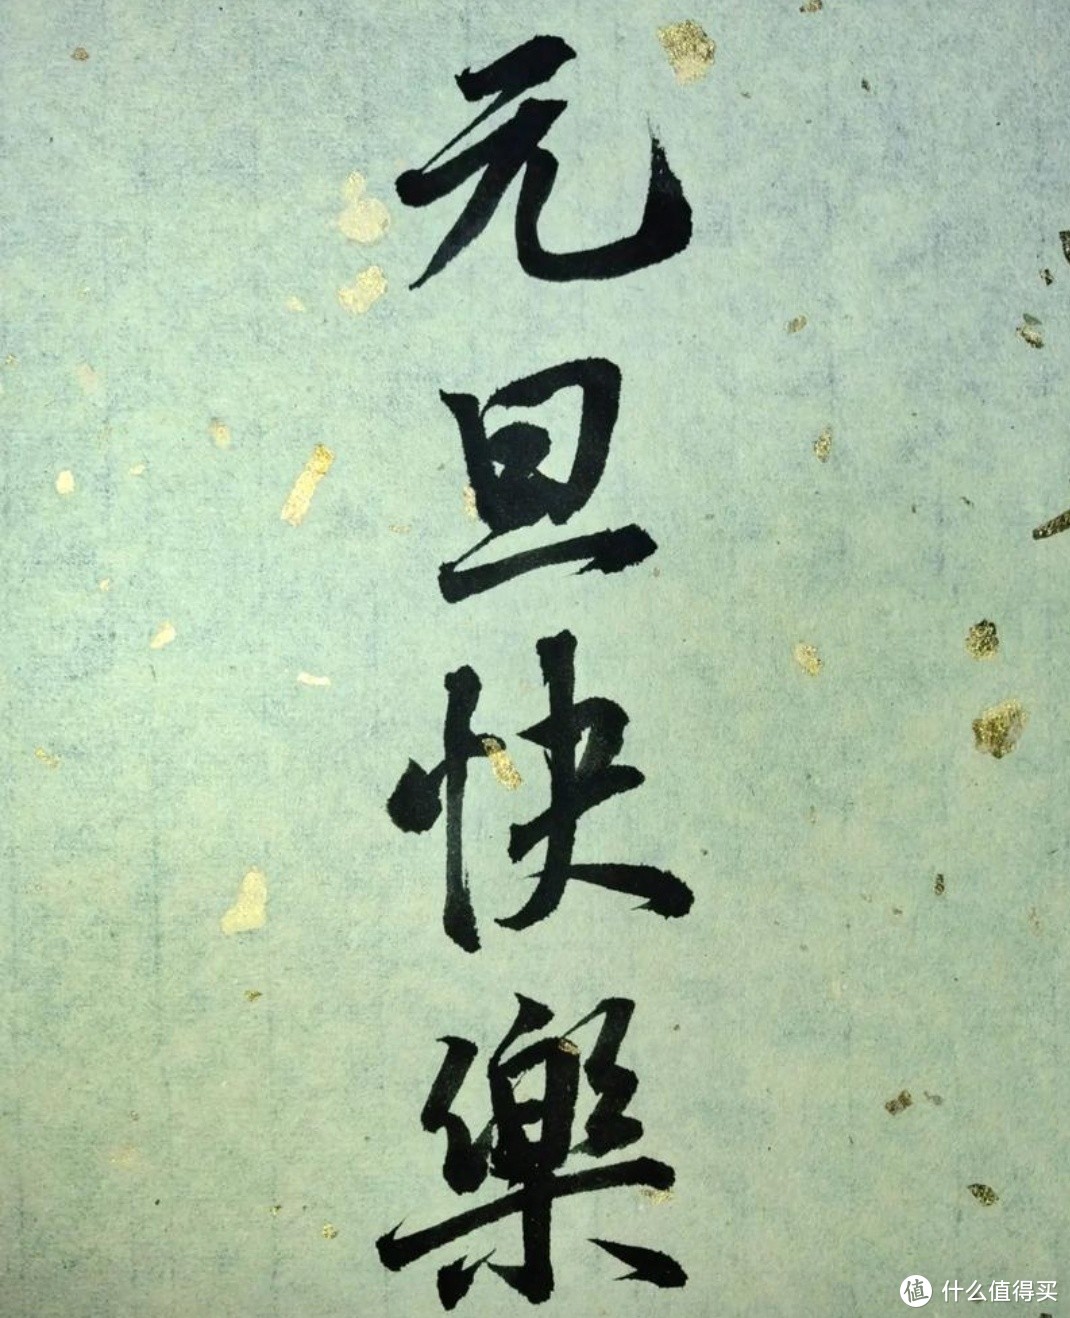 元旦快樂
值 什么值得买